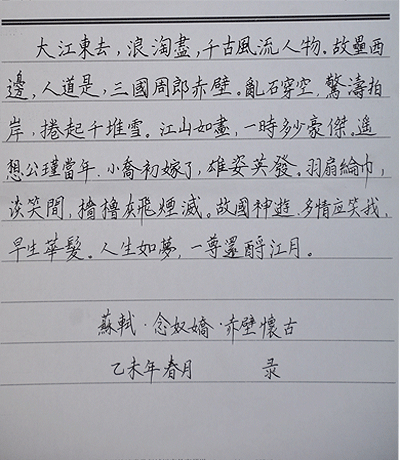 大江東去，浪淘盡，千古風流人物。故壘西
邊，人道是，三國周郎赤壁。亂石穿空，驚濤拍
岸，捲起千堆雪。江山如畫，一時多少豪傑。遙
想公瑾當年，小喬初嫁了，雄姿英發。羽扇綸巾，
淡笑間，檣櫓灰飛煙滅。故國神遊，多情应笑我，
早生華髮。人生如夢，一尊還酹江月。
蘇軾·念奴嬌·赤壁懷古
乙未年春月 录